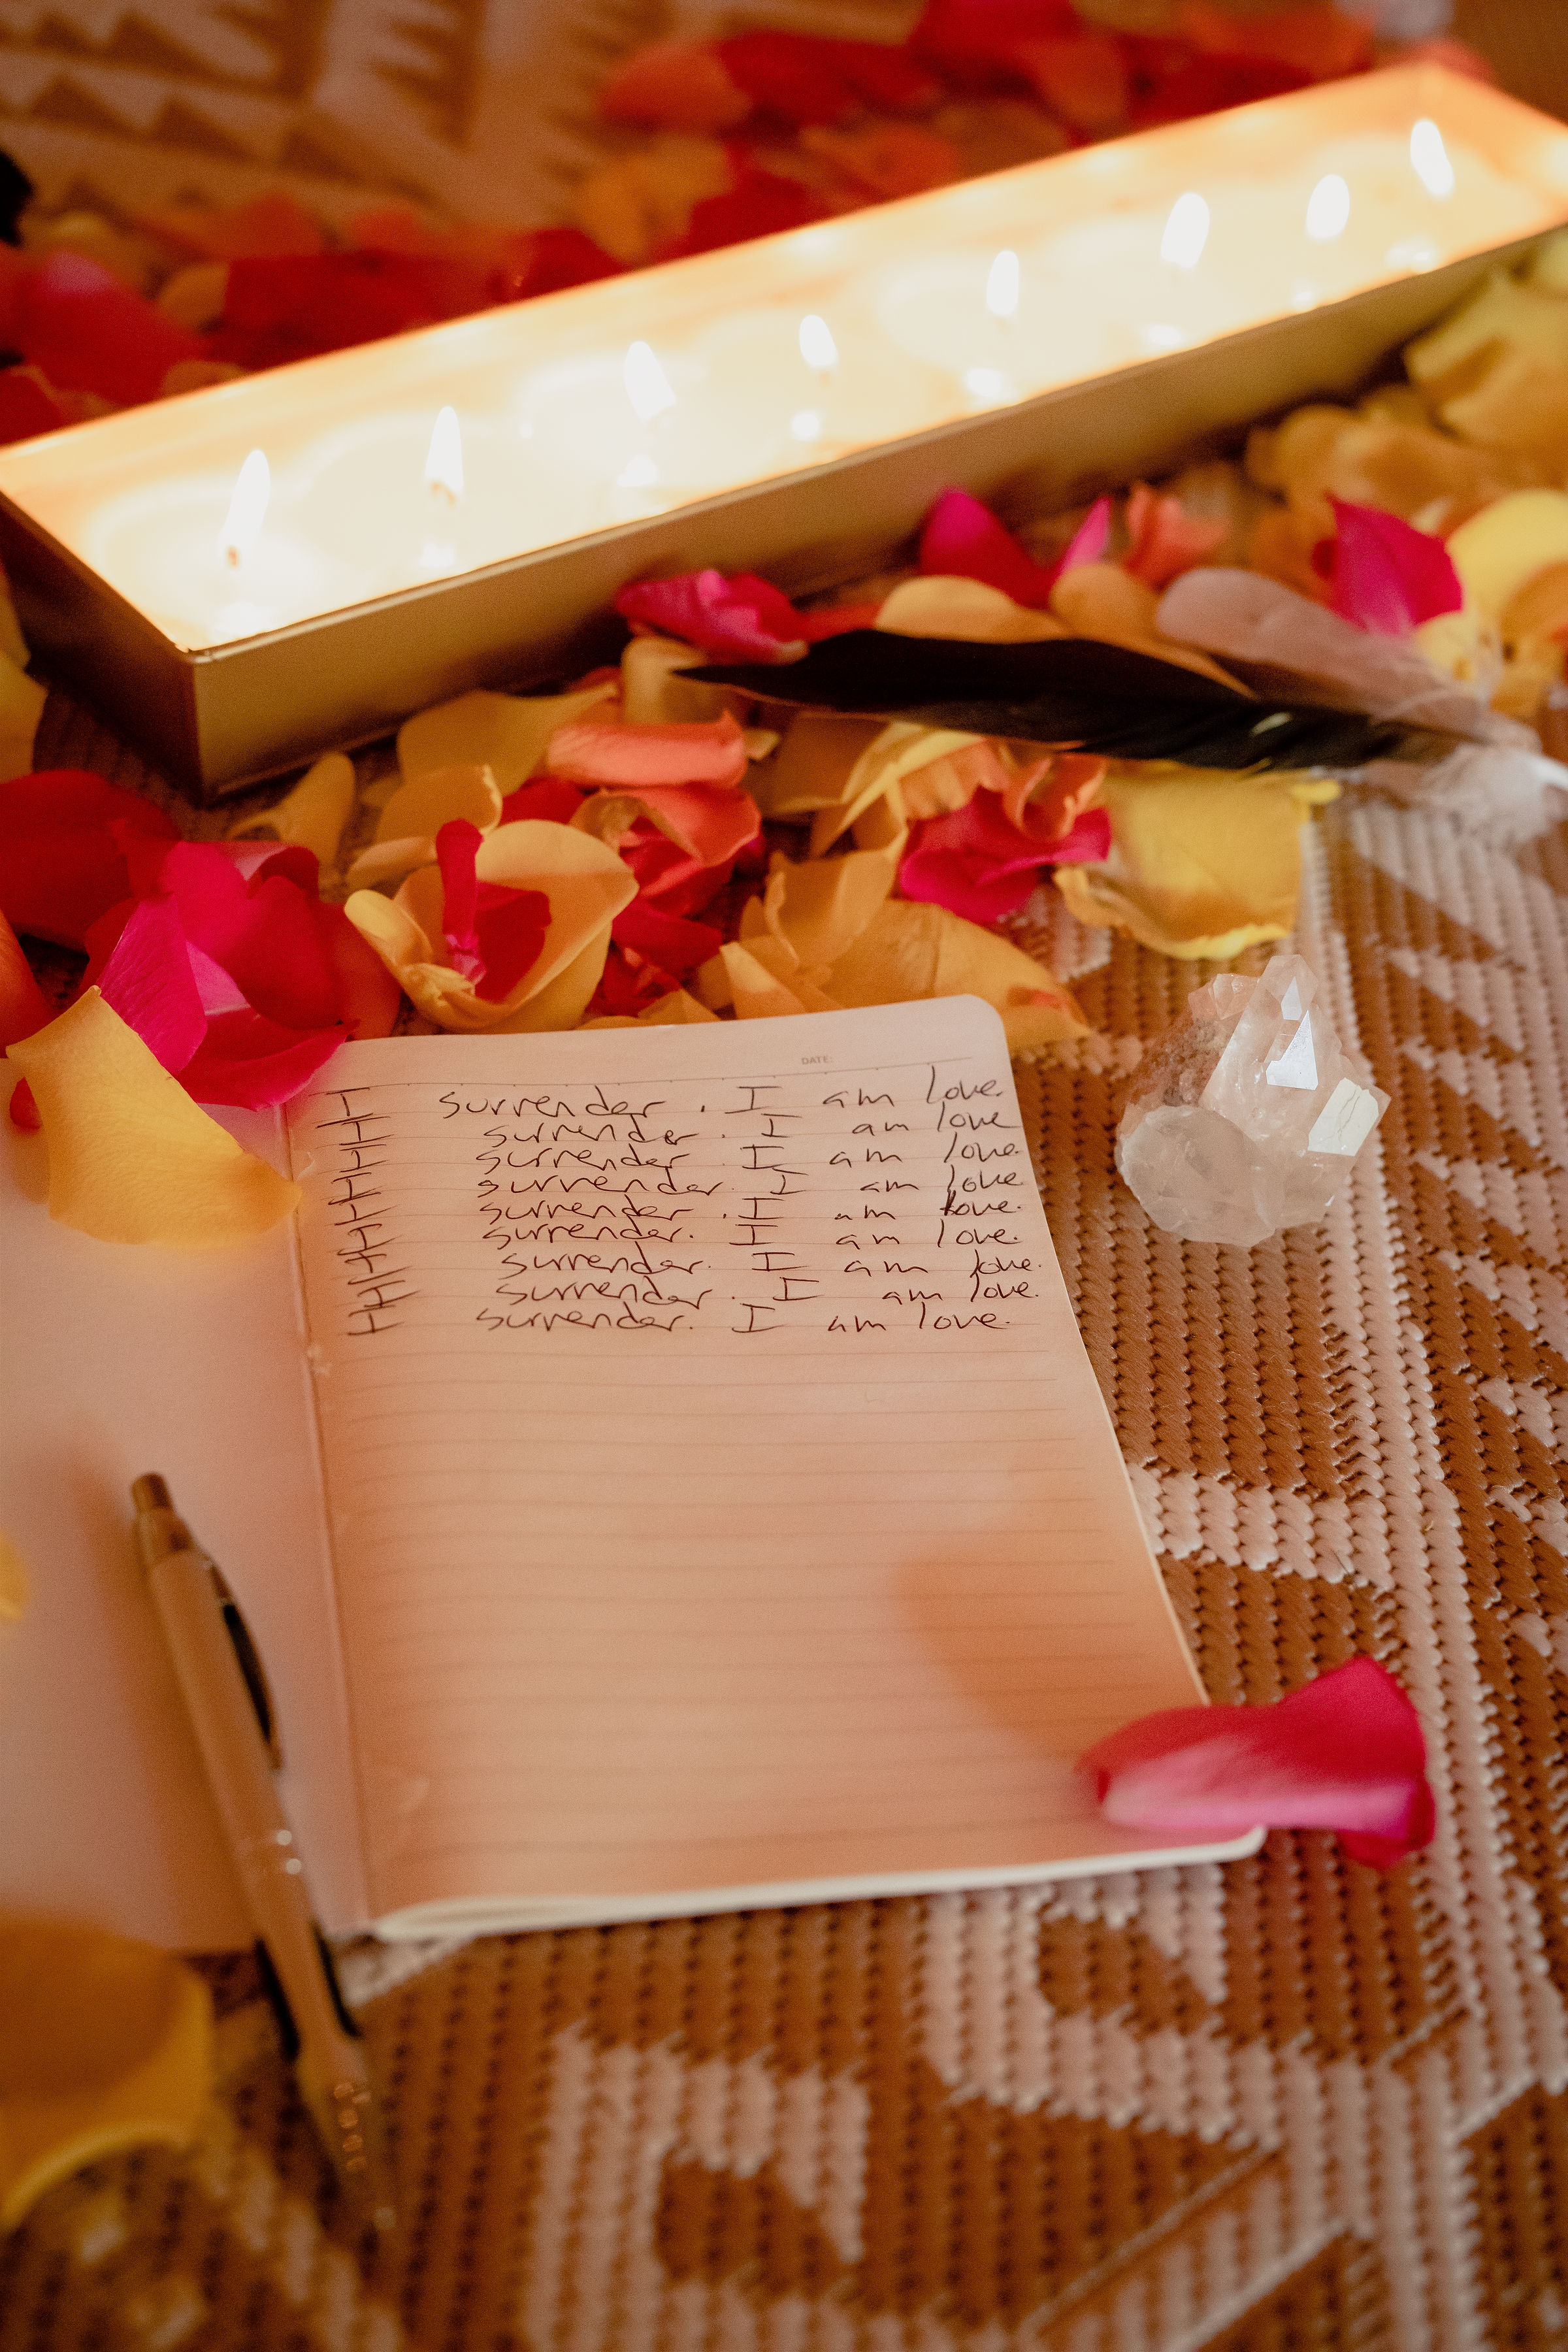 DATE:
I surrender. I am love.
I surrender. I am love
I surrender. I am love.
I surrender. I am love.
I surrender. I am love.
I surrender. I am love.
I surrender. I am love.
I surrender. I am love.
I surrender. I am love.